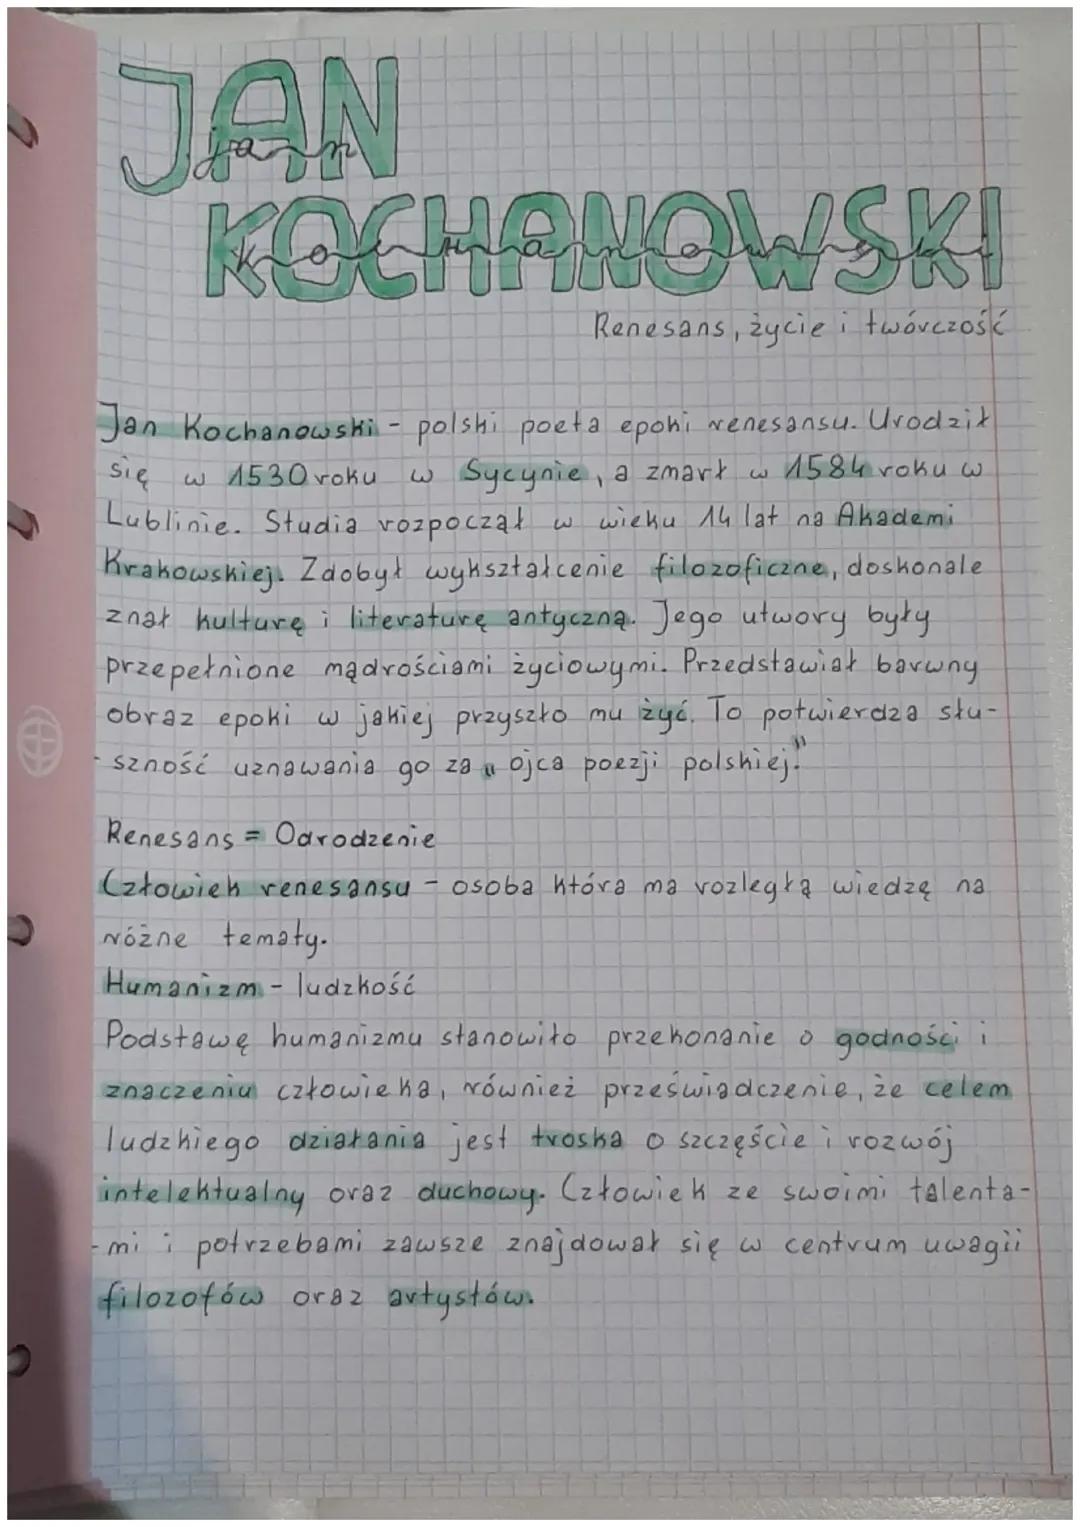 JAN
jan
KOCHANOWSKI
kochanowski
Renesans, życie i twórczość
Jan Kochanowski - polski poeta epoki renesansu. Urodził
się w 1530 roku w Sycynie, a zmarł w 1584 roku w
Lublinie. Studia rozpoczął w wieku 14 lat na Akademi
Krakowskiej. Zdobył wykształcenie filozoficzne, doskonale
znał kulturę i literaturę antyczną. Jego utwory były
przepełnione mądrościami życiowymi. Przedstawiał barwny
obraz epoki w jakiej przyszło mu żyć. To potwierdza słu-
-szność uznawania go za „ojca poezji polskiej."
Renesans = Odrodzenie
Człowiek renesansu - osoba która ma rozległą wiedzę na
różne tematy.
Humanizm - ludzkość
Podstawę humanizmu stanowiło przekonanie o godności i
znaczeniu człowieka, również przeświadczenie, że celem
ludzkiego działania jest troska o szczęście i rozwój
intelektualny oraz duchowy. Człowiek ze swoimi talenta-
-mi i potrzebami zawsze znajdował się w centrum uwagii
filozofów oraz artystów.